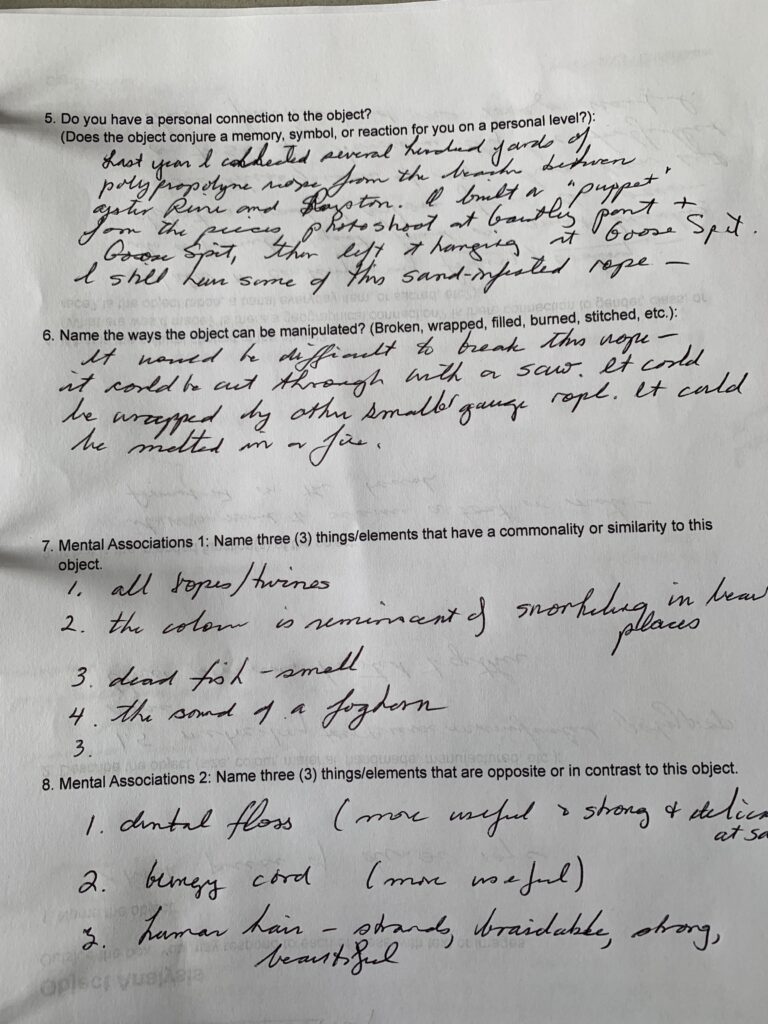 5. Do you have a personal connection to the object?
(Does the object conjure a memory, symbol, or reaction for you on a personal level?):
Last year I collected several hundred yards of
polypropolyne rope from the beach between
oyster River and Royston. I built a "puppet"
from the pieces, photoshoot at point +
Goose Spit, then left it hanging at Goose Spit.
I still have some of this sand-infested rope —
6. Name the ways the object can be manipulated? (Broken, wrapped, filled, burned, stitched, etc.):
It would be difficult to break this rope —
it could be cut through with a saw. It could
be wrapped by other smaller gauge rope. It could
be melted in a fire.
7. Mental Associations 1: Name three (3) things/elements that have a commonality or similarity to this
object.
1. all ropes/twines
2. the colour is reminiscent of snorkeling in
places
3. dead fish - smell
4. the sound of a foghorn
3.
8. Mental Associations 2: Name three (3) things/elements that are opposite or in contrast to this object.
1. dental floss (more useful & strong &
at
2. bungy cord (more useful)
3. human hair - strands, braidable, strong,
beautiful
Object Analysis